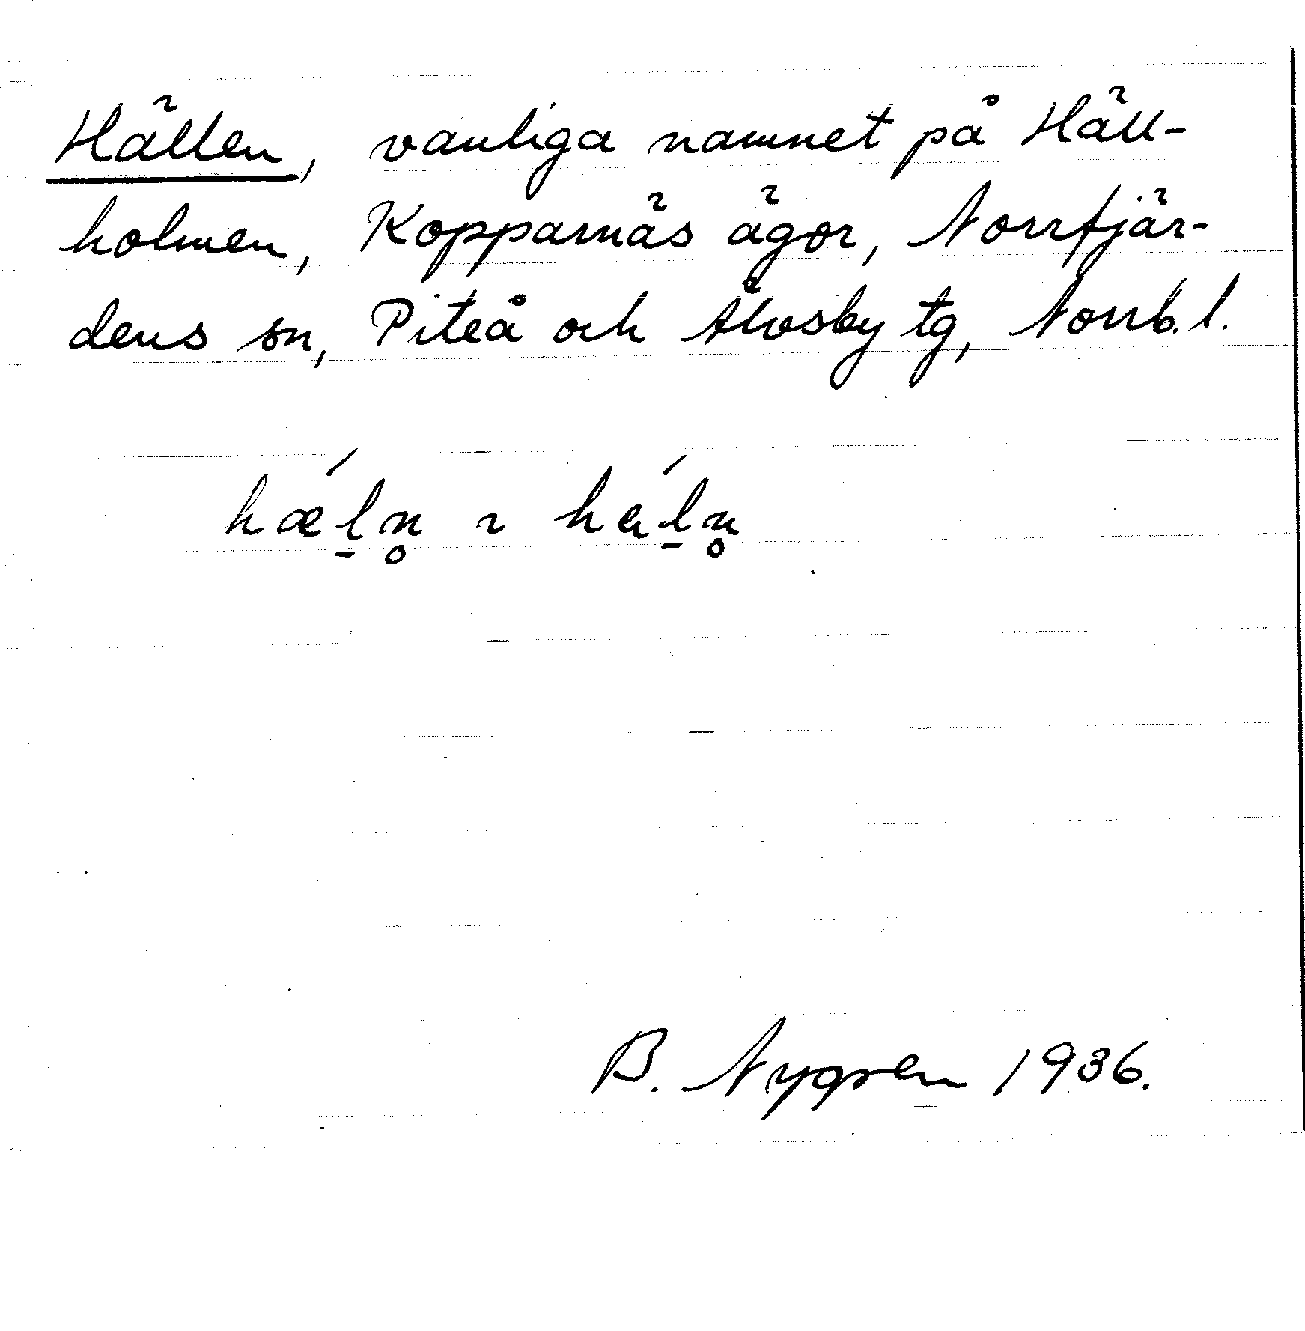 Hällen, vanliga namnet på Häll-
holmen, Kopparnäs ägor, Norrfjär-
dens sn, Piteå och Älvsby tg, Norrb. l.
hǽl̠n̥ ~ ha̋l̠n̥
B. Nygren 1936.